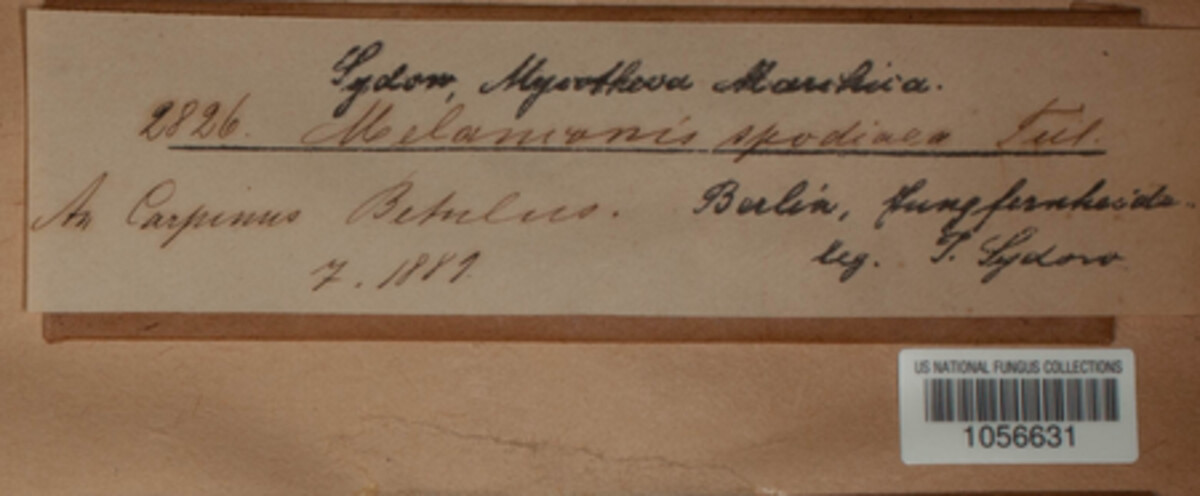 Sydow, Mycotheca Marchica.
2826. Melanconis spodiaea Tul.
An Carpinus Betulus. Berlin, Jungfernheide.
7. 1889. leg. P. Sydow
US NATIONAL FUNGUS COLLECTIONS
1056631